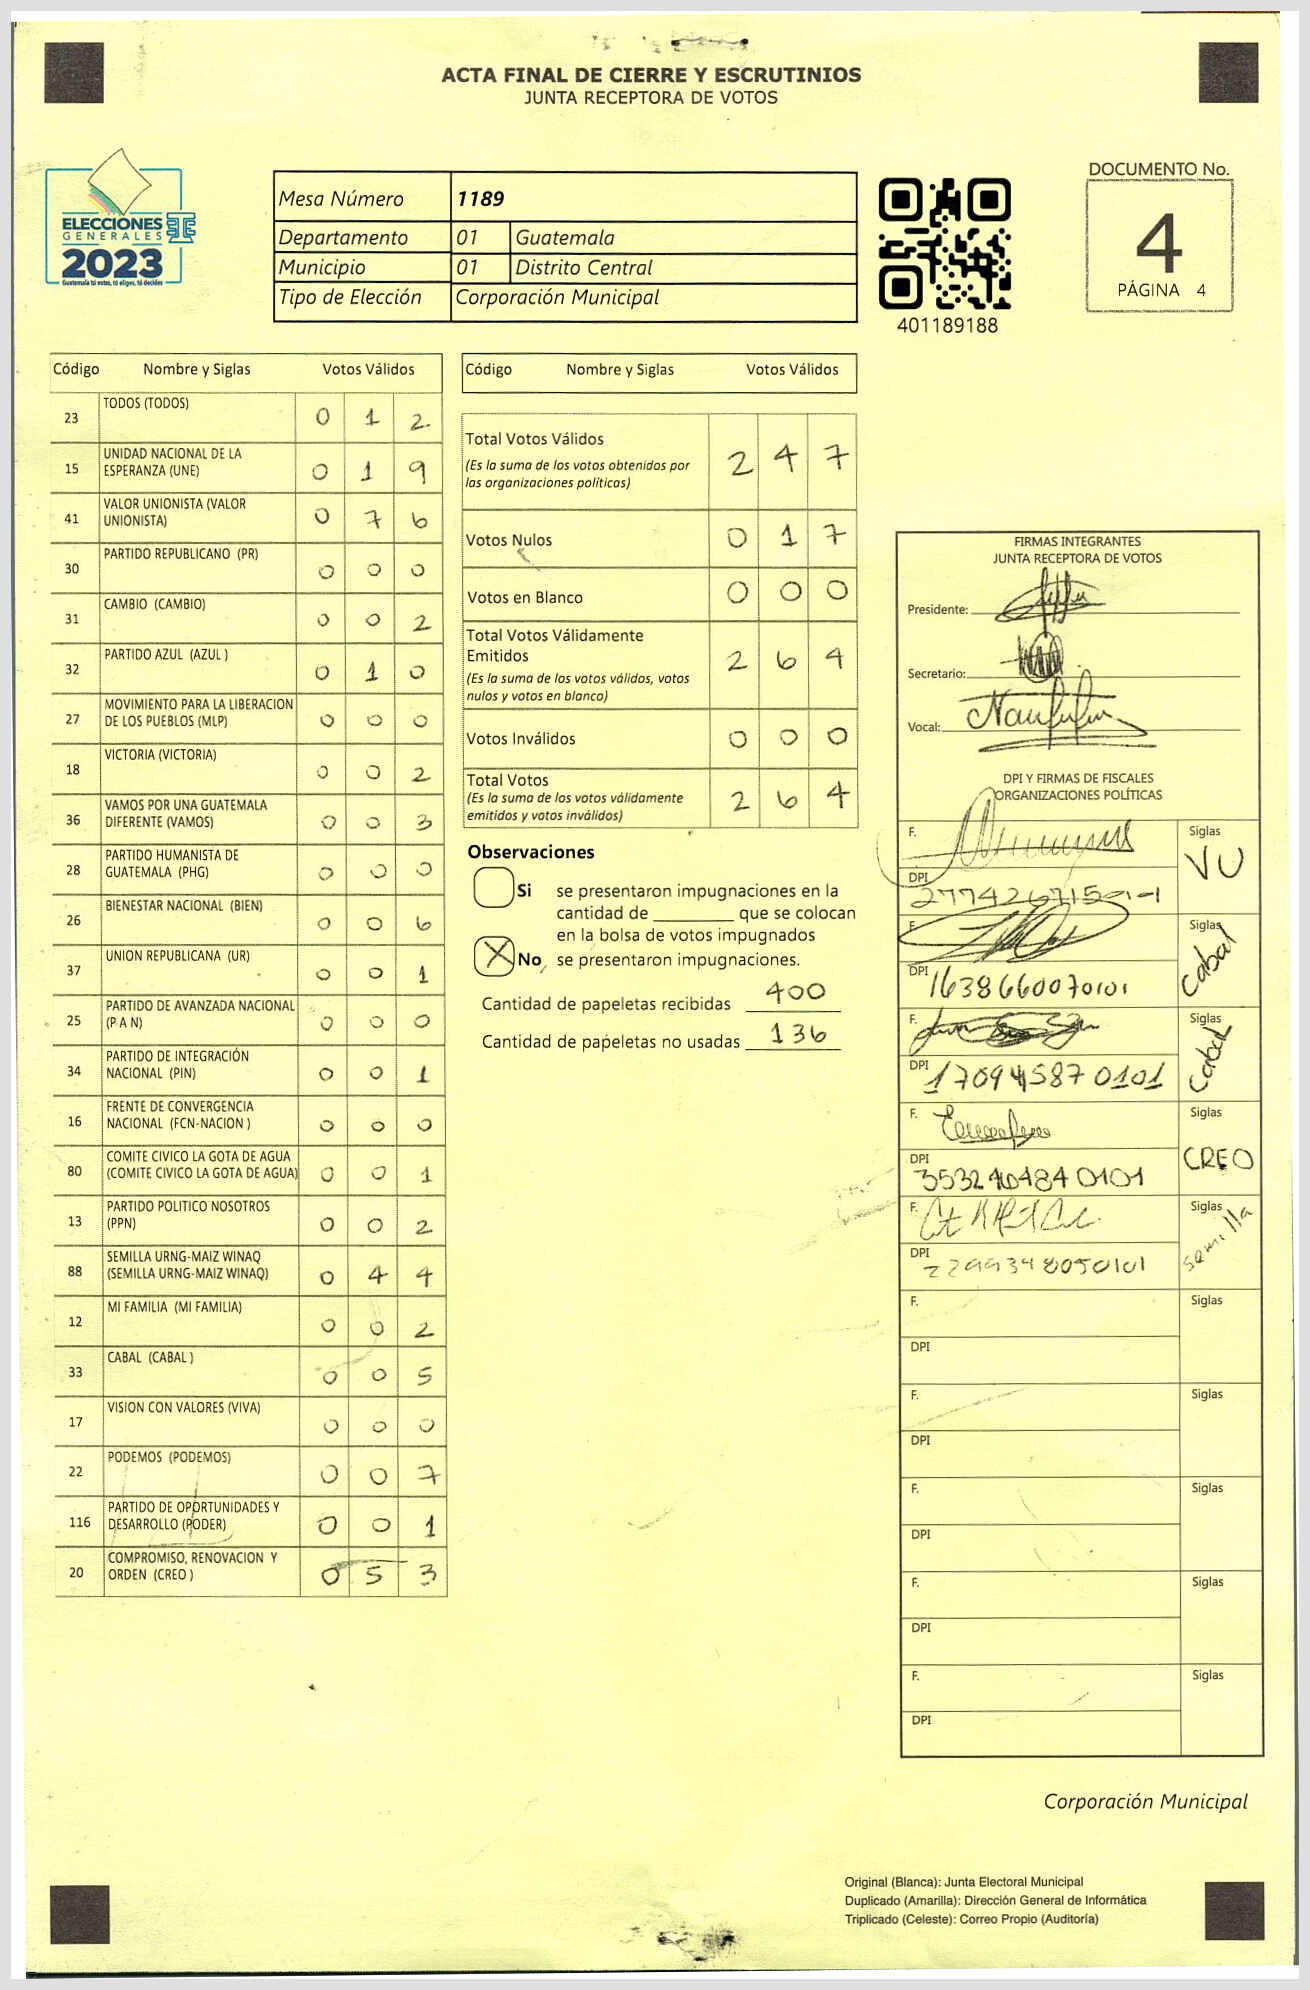 ACTA FINAL DE CIERRE Y ESCRUTINIOS
JUNTA RECEPTORA DE VOTOS
ELECCIONES
GENERALES
2023
Guatemala tú votas, tú eliges, tú decides
Mesa Número 1189
Departamento 01 Guatemala
Municipio 01 Distrito Central
Tipo de Elección Corporación Municipal
401189188
DOCUMENTO No.
4
PÁGINA 4
Código Nombre y Siglas Votos Válidos
23 TODOS (TODOS) 0 1 2
15 UNIDAD NACIONAL DE LA
ESPERANZA (UNE) 0 1 9
41 VALOR UNIONISTA (VALOR
UNIONISTA) 0 7 6
30 PARTIDO REPUBLICANO (PR) 0 0 0
31 CAMBIO (CAMBIO) 0 0 2
32 PARTIDO AZUL (AZUL ) 0 1 0
27 MOVIMIENTO PARA LA LIBERACION
DE LOS PUEBLOS (MLP) 0 0 0
18 VICTORIA (VICTORIA) 0 0 2
36 VAMOS POR UNA GUATEMALA
DIFERENTE (VAMOS) 0 0 3
28 PARTIDO HUMANISTA DE
GUATEMALA (PHG) 0 0 0
26 BIENESTAR NACIONAL (BIEN) 0 0 6
37 UNION REPUBLICANA (UR) 0 0 1
25 PARTIDO DE AVANZADA NACIONAL
(P A N) 0 0 0
34 PARTIDO DE INTEGRACIÓN
NACIONAL (PIN) 0 0 1
16 FRENTE DE CONVERGENCIA
NACIONAL (FCN-NACION ) 0 0 0
80 COMITE CIVICO LA GOTA DE AGUA
(COMITE CIVICO LA GOTA DE AGUA) 0 0 1
13 PARTIDO POLITICO NOSOTROS
(PPN) 0 0 2
88 SEMILLA URNG-MAIZ WINAQ
(SEMILLA URNG-MAIZ WINAQ) 0 4 4
12 MI FAMILIA (MI FAMILIA) 0 0 2
33 CABAL (CABAL ) 0 0 5
17 VISION CON VALORES (VIVA) 0 0 0
22 PODEMOS (PODEMOS) 0 0 7
116 PARTIDO DE OPORTUNIDADES Y
DESARROLLO (PODER) 0 0 1
20 COMPROMISO, RENOVACION Y
ORDEN (CREO ) 0 5 3
Código Nombre y Siglas Votos Válidos
Total Votos Válidos 2 4 7
(Es la suma de los votos obtenidos por
las organizaciones políticas)
Votos Nulos 0 1 7
Votos en Blanco 0 0 0
Total Votos Válidamente
Emitidos 2 6 4
(Es la suma de los votos válidos, votos
nulos y votos en blanco)
Votos Inválidos 0 0 0
Total Votos 2 6 4
(Es la suma de los votos válidamente
emitidos y votos inválidos)
Observaciones
Si se presentaron impugnaciones en la
cantidad de ________ que se colocan
en la bolsa de votos impugnados
X No se presentaron impugnaciones.
Cantidad de papeletas recibidas 400
Cantidad de papeletas no usadas 136
FIRMAS INTEGRANTES
JUNTA RECEPTORA DE VOTOS
Presidente:
Secretario:
Vocal:
DPI Y FIRMAS DE FISCALES
ORGANIZACIONES POLÍTICAS
F. Siglas
VU
DPI
F. Siglas
Cabal
DPI 1638660070101
F. Siglas
Cabal
DPI
F. Siglas
CREO
DPI
F. Siglas
Semilla
DPI
F. Siglas
DPI
F. Siglas
DPI
F. Siglas
DPI
F. Siglas
DPI
F. Siglas
DPI
Corporación Municipal
Original (Blanca): Junta Electoral Municipal
Duplicado (Amarilla): Dirección General de Informática
Triplicado (Celeste): Correo Propio (Auditoría)